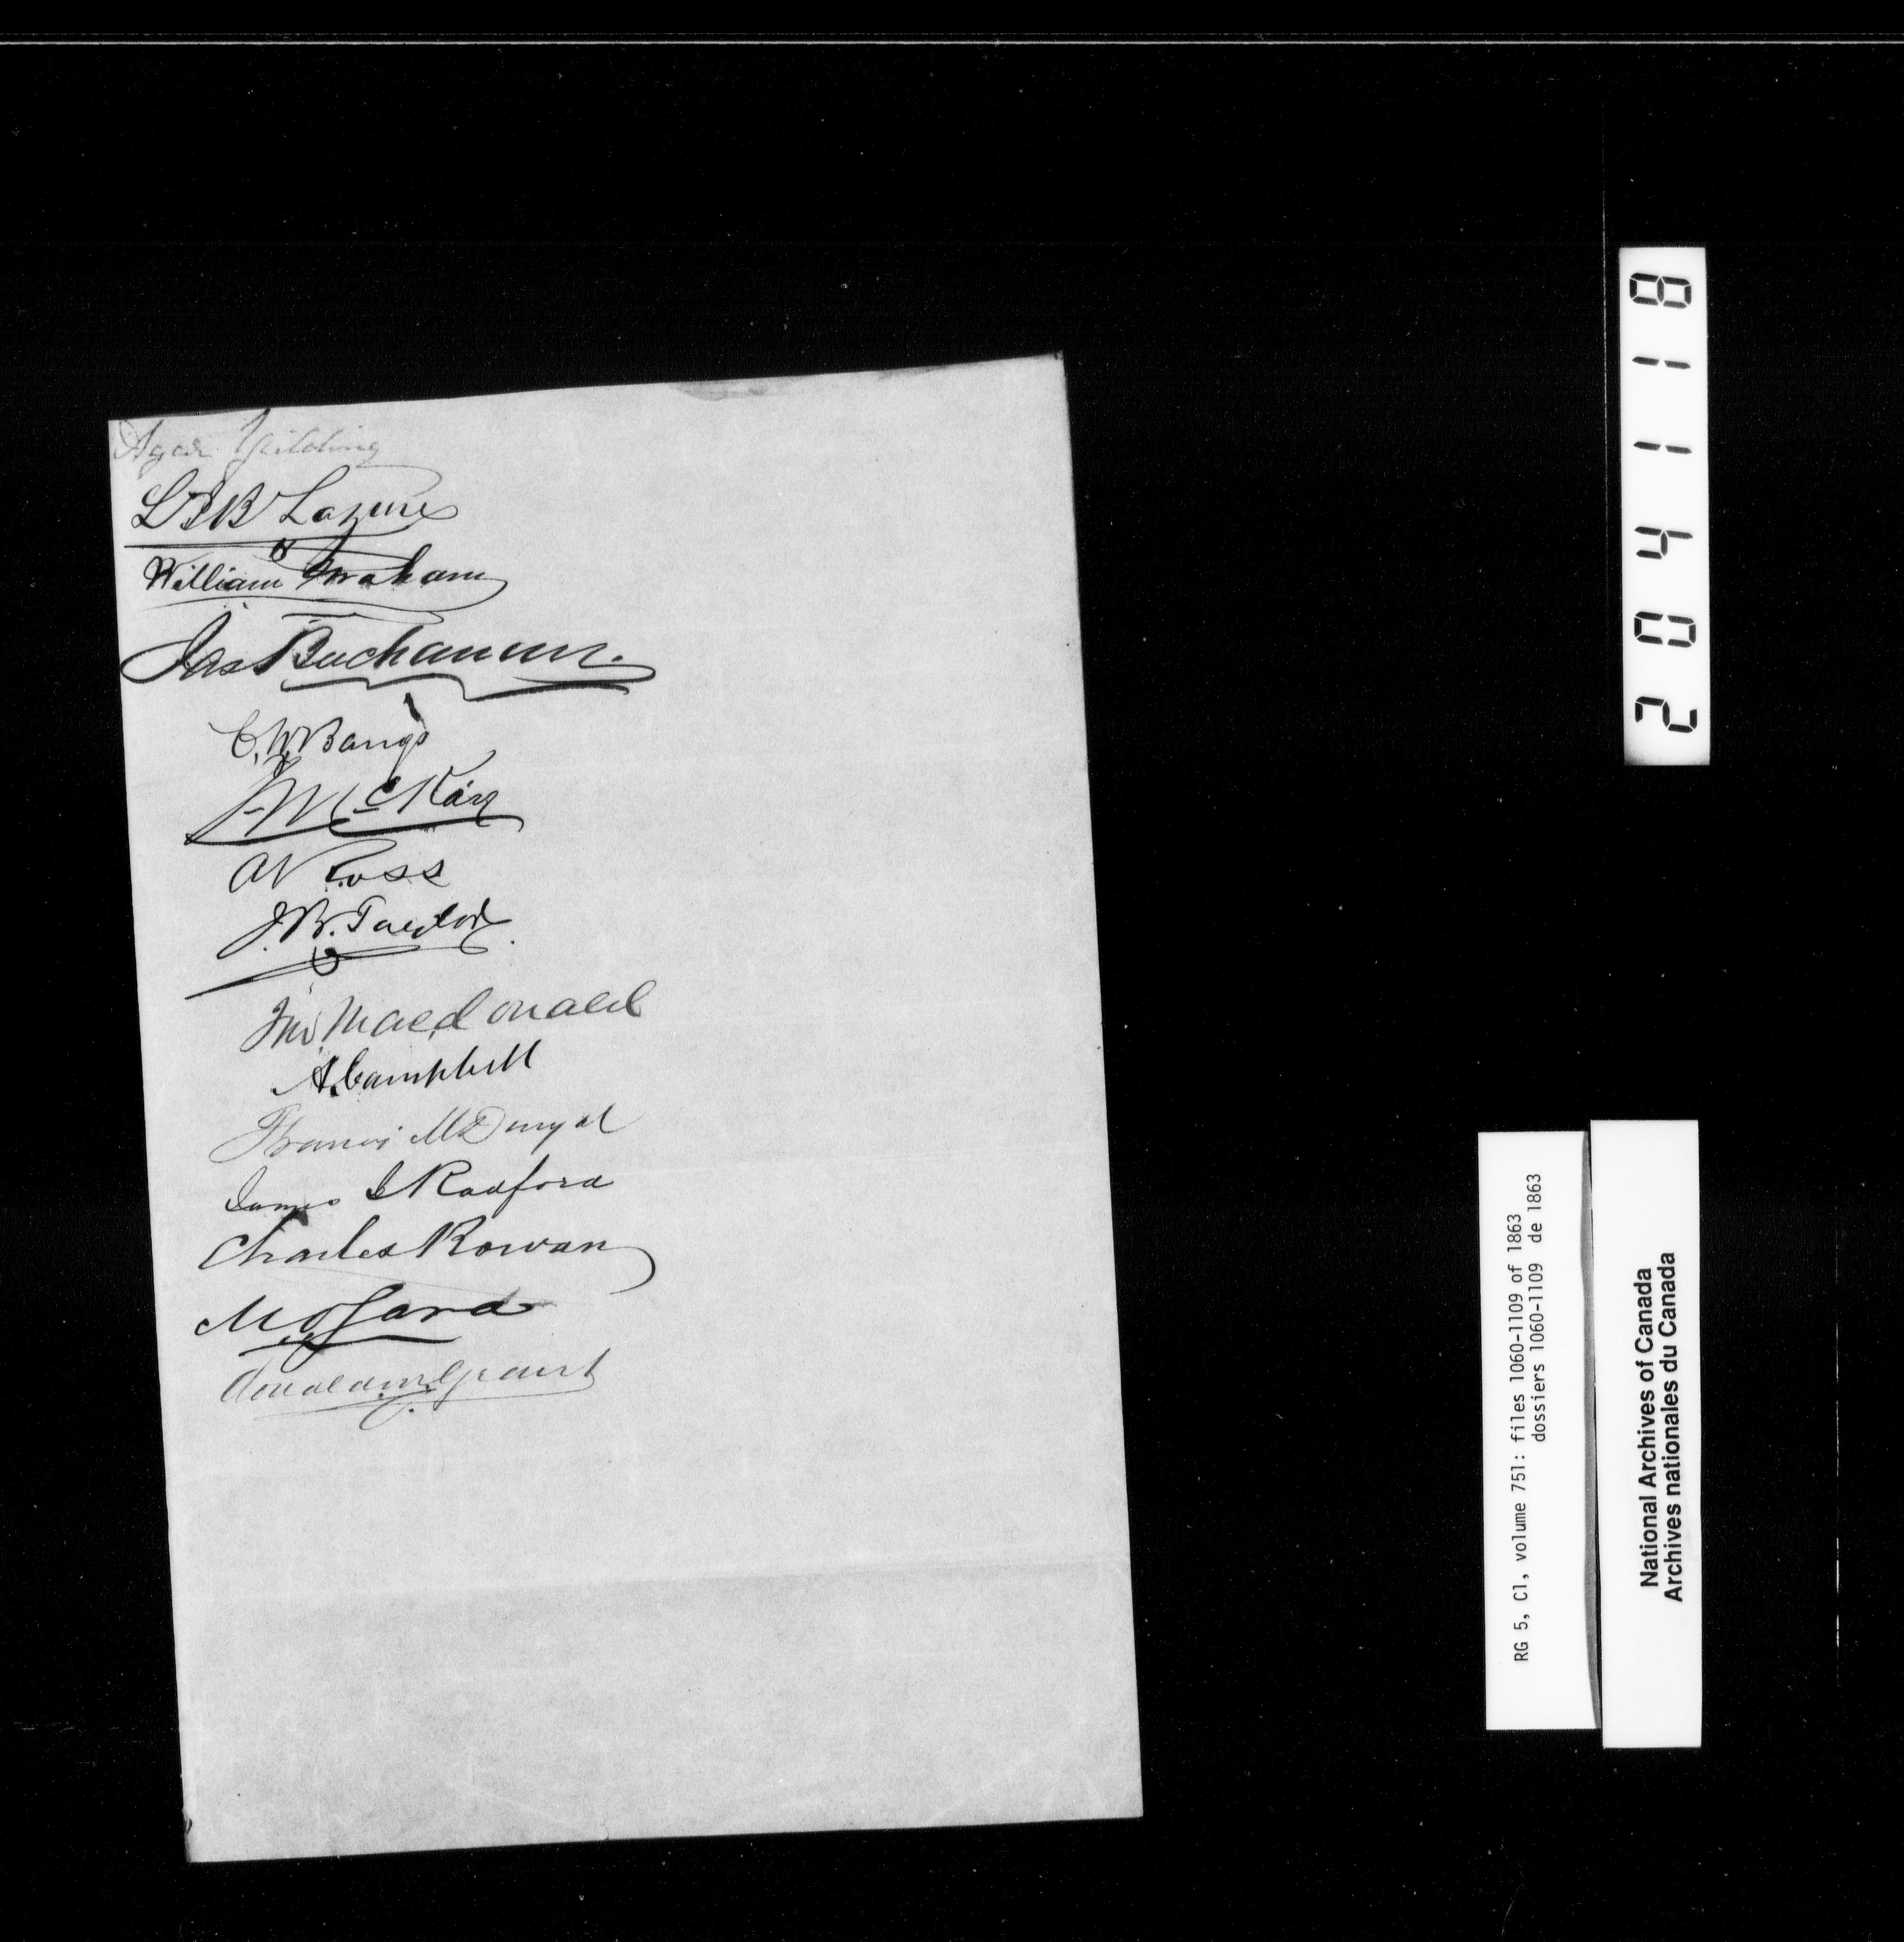 Agar Yeilding
William Graham
Jas Buchanan.
C. W. Bangs
A McKay
W Ross
J. B. Taylor
Jno Macdonald
A. Campbell
Francis McDougal
James S Radford
Charles Rowan
Donald M. Grant
204118
RG 5, C1, volume 751: files 1060-1109 of 1863
dossiers 1060-1109 de 1863
National Archives of Canada
Archives nationales du Canada